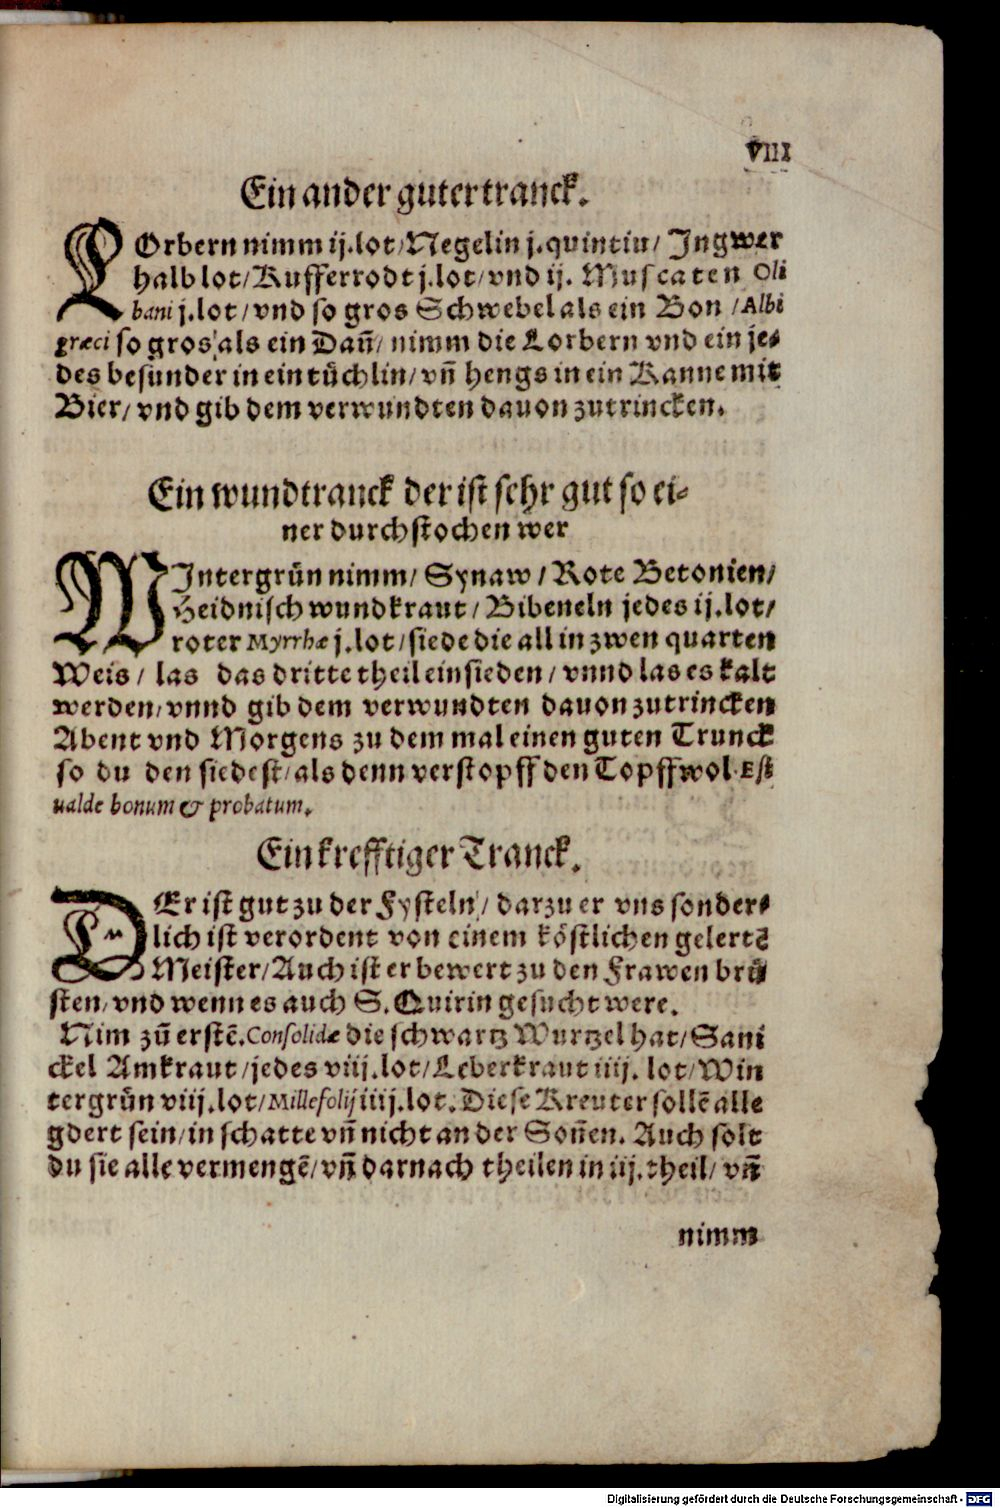 VIII
Ein ander guter tranck.
LOrbern nimm ij.lot/Negelin j.quintin/ Jngwer
halb lot/Kufferrodt j.lot/vnd ij. Muscaten Oli
bani j.lot/vnd so gros Schwebel als ein Bon /Albi
græci so gros als ein Dañ/ nimm die Lorbern vnd ein je⸗
des besunder in ein tüchlin/vñ hengs in ein Kanne mit
Bier/vnd gib dem verwundten dauon zutrincken.
Ein wundtranck der ist sehr gut so ei⸗
ner durchstochen wer
WJntergrün nimm/ Synaw / Rote Betonien/
Heidnisch wundkraut / Bibeneln jedes ij.lot/
roter Myrrhæ j.lot/siede die all in zwen quarten
Weis / las das dritte theil einsieden/vnnd las es kalt
werden/vnnd gib dem verwundten dauon zutrincken
Abent vnd Morgens zu dem mal einen guten Trunck
so du den siedest/als denn verstopff den Topff wol. Est
ualde bonum & probatum.
Ein krefftiger Tranck.
DEr ist gut zu der Fysteln / darzu er vns sonder⸗
lich ist verordent von einem köstlichen gelertē
Meister/Auch ist er bewert zu den Frawen brü
sten/vnd wenn es auch S.Quirin gesucht were.
Nim zū erstē.Consolidæ die schwartz Wurtzel hat/Sani
ckel Amkraut/jedes viij.lot/Leberkraut iiij. lot/Win
tergrün viij.lot/Millefolij iiij.lot.Diese Kreuter sollē alle
gdert sein/in schatte vñ nicht an der Soñen. Auch solt
du sie alle vermengē/vñ darnach theilen in iij.theil/vñ
nimm
Digitalisierung gefördert durch die Deutsche Forschungsgemeinschaft - DFG